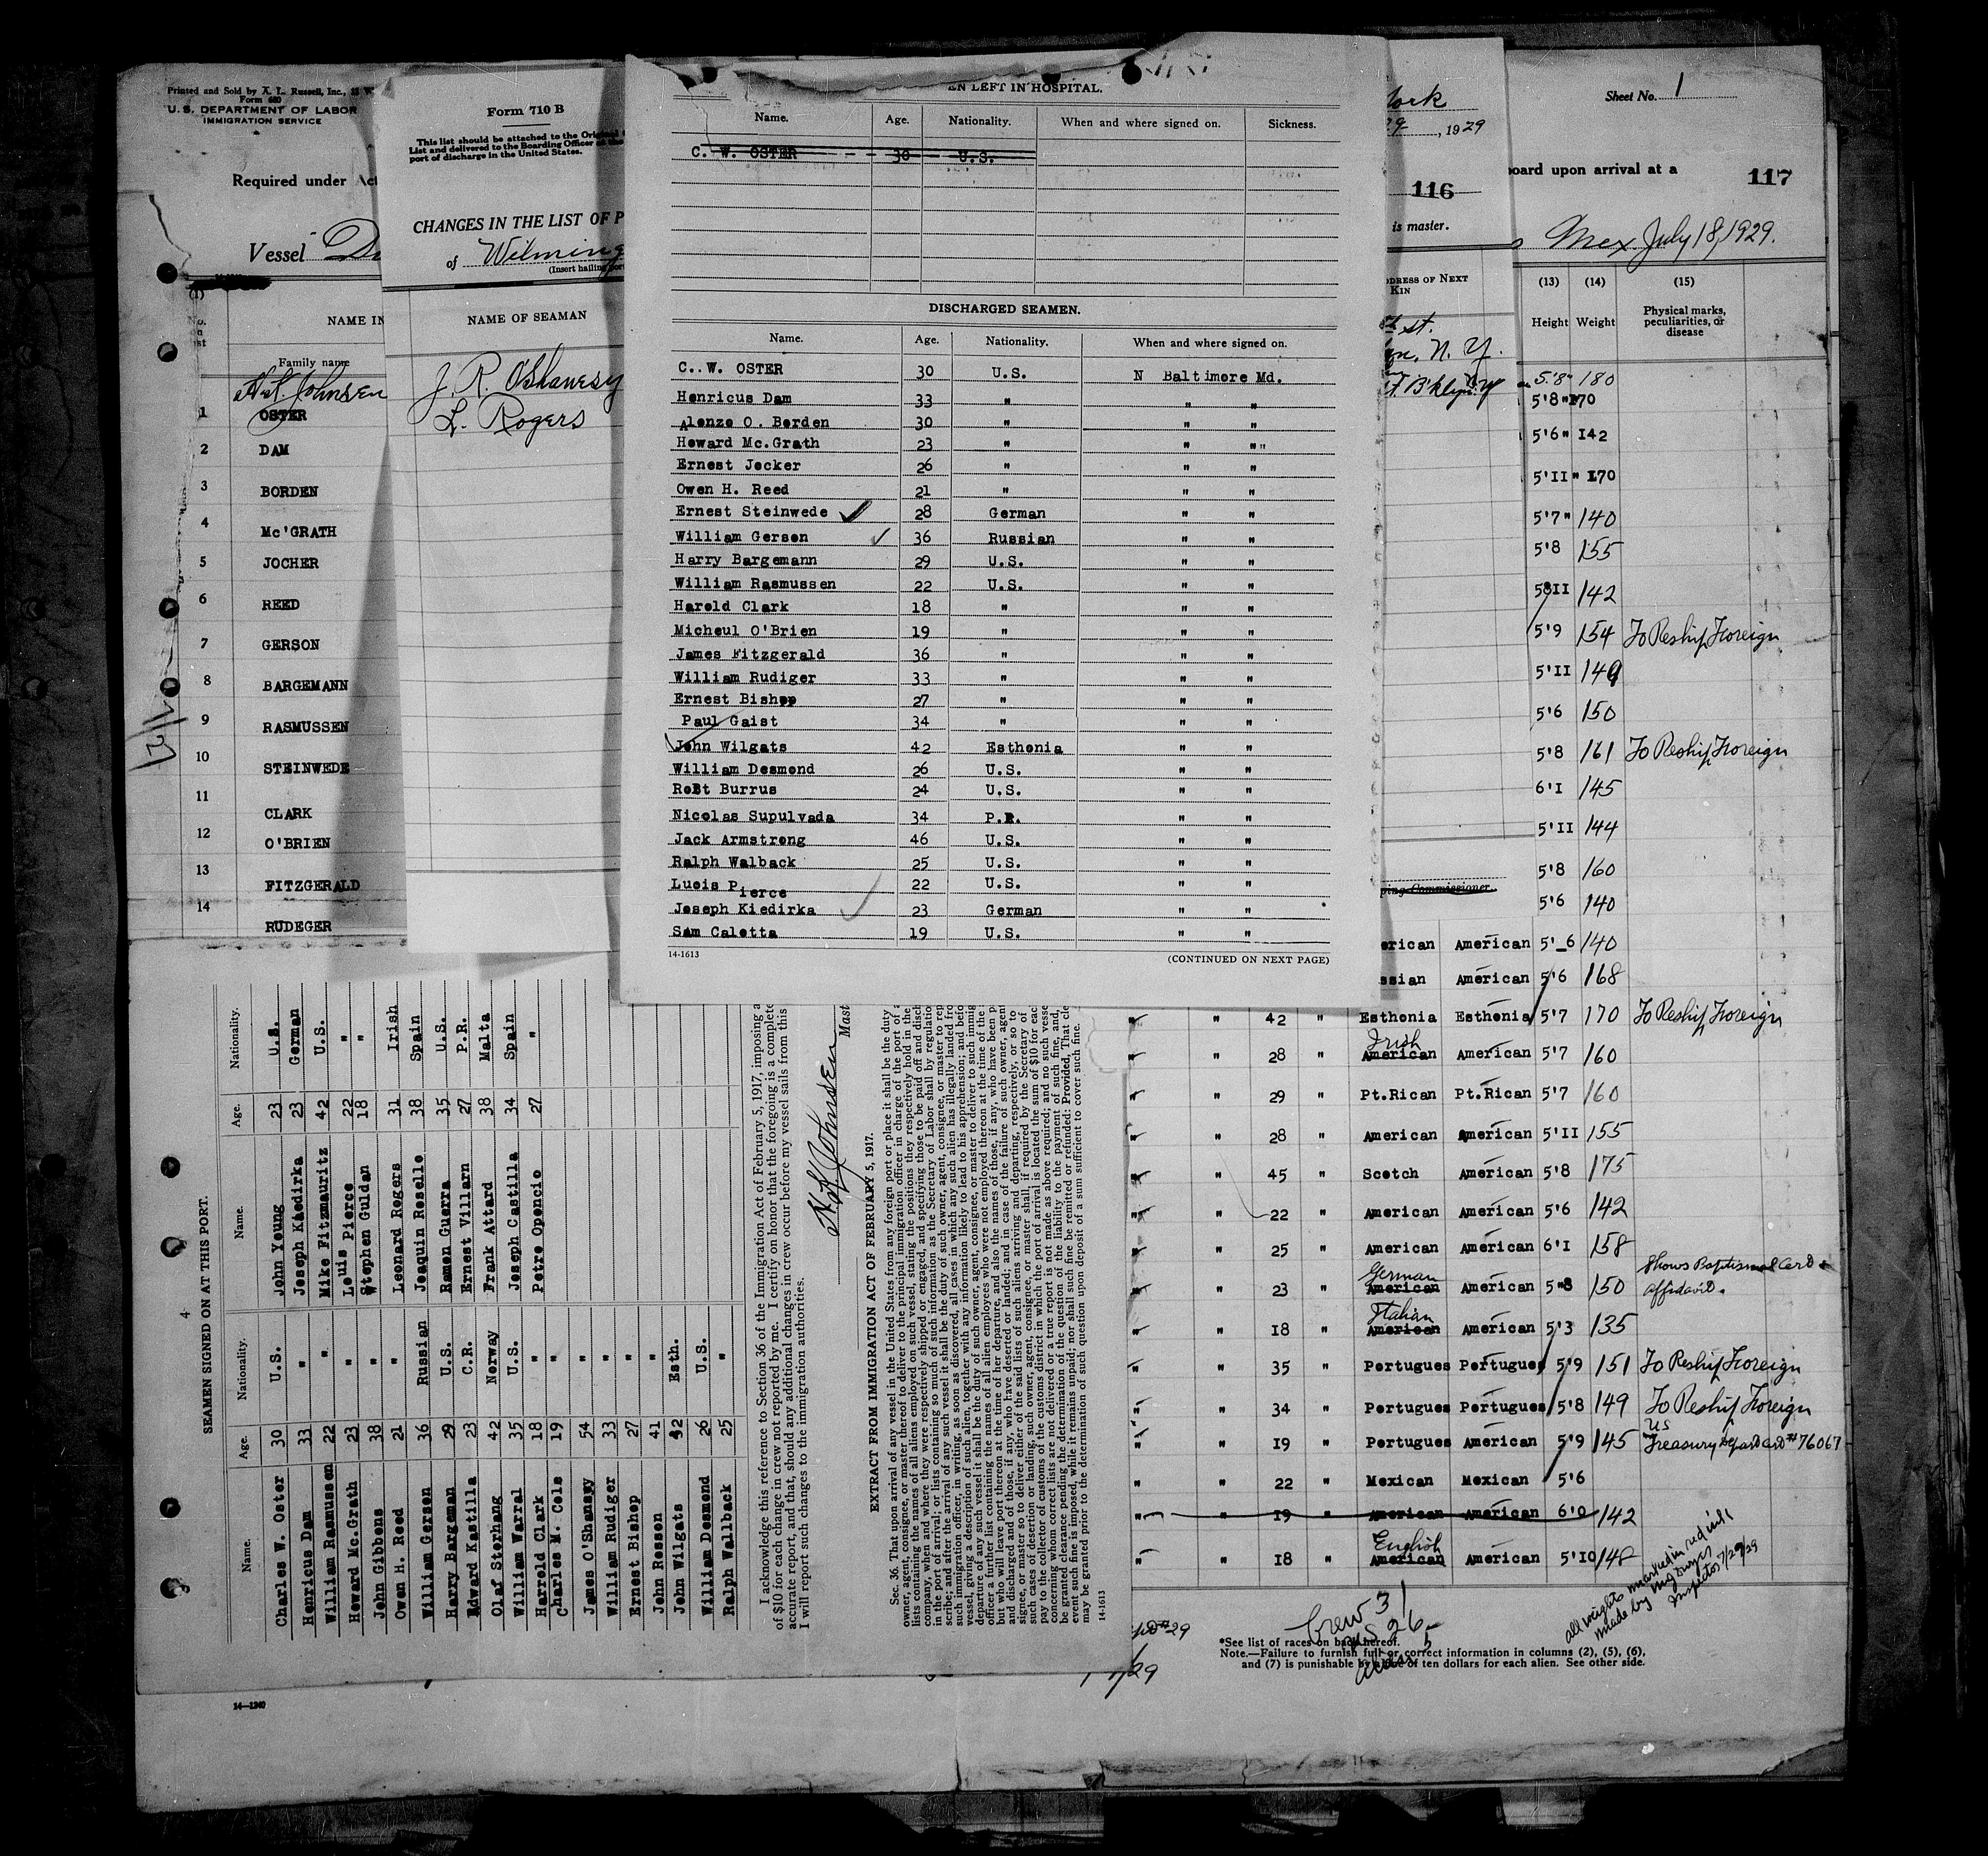 Printed and Sold by A. L. Russell, Inc., 32 W
Form 680
U. S. DEPARTMENT OF LABOR
IMMIGRATION SERVICE
Required under Act
Vessel
(1)
No.
on
list
NAME IN
Family name
H. L. Johnsen
1 OSTER
2 DAM
3 BORDEN
4 Mc'GRATH
5 JOCHER
6 REED
7 GERSON
8 BARGEMANN
9 RASMUSSEN
10 STEINWEDE
11 CLARK
12 O'BRIEN
13 FITZGERALD
14 RUDEGER
Form 710 B
This list should be attached to the Original
List and delivered to the Boarding Officer at the
port of discharge in the United States.
CHANGES IN THE LIST OF P
of Wilming
(Insert hailing port
NAME OF SEAMAN
J. R. O'Shanesy
L. Rogers
EN LEFT IN HOSPITAL.
Name. Age. Nationality. When and where signed on. Sickness.
C. W. OSTER - - 30 - U.S.
DISCHARGED SEAMEN.
Name. Age. Nationality. When and where signed on.
C.. W. OSTER 30 U.S. N Baltimore Md.
Henricus Dam 33 " " "
Alonzo O. Borden 30 " " "
Howard Mc.Grath 23 " " ""
Ernest Jocker 26 " " "
Owen H. Reed 21 " " "
Ernest Steinwede ✓ 28 German " "
William Gerson ✓ 36 Russian " "
Harry Bargemann 29 U.S. " "
William Rasmussen 22 U.S. " "
Harold Clark 18 " " "
Micheul O'Brien 19 " " "
James Fitzgerald 36 " " "
William Rudiger 33 " " "
Ernest Bishop 27 " " "
Paul Gaist 34 " " "
John Wilgats 42 Esthonia " "
William Desmond 26 U.S. " "
Robt Burrus 24 U.S. " "
Nicolas Supulvada 34 P.R. " "
Jack Armstrong 46 U.S. " "
Ralph Walback 25 U.S. " "
Lueis Pierce 22 U.S. " "
Joseph Kiedirka ✓ 23 German " "
Sam Caletta 19 U.S. " "
14-1613 (CONTINUED ON NEXT PAGE)
York
, 1929
116
is master.
DDRESS OF NEXT
KIN
st.
N. Y.
B'klyn. N.Y
ping Commissioner
Sheet No. 1
board upon arrival at a
117
Mex. July 18, 1929.
(13) (14) (15)
Height Weight Physical marks, peculiarities, or disease
5'8" 180
5'8" 170
5'6" I42
5'II" I70
5'7" 140
5'8 155
5'8II 142
5'9 154 To Reship Foreign
5'II 149
5'6 150
5'8 161 To Reship Foreign
6'I 145
5'II 144
5'8 160
5'6 140
erican American 5'_6 140
ssian American 5'6 168
" " 42 " Esthonia Esthonia 5'7 170 To Reship Foreign
Irish
" " 28 " American American 5'7 160
" " 29 " Pt.Rican Pt.Rican 5'7 160
" " 28 " American American 5'II 155
" " 45 " Scotch American 5'8 175
" " 22 " American American 5'6 142
" " 25 " American American 6'I 158
German Shows Baptismal Card &
" " 23 " American American 5"8 150 affidavit.
Italian
" " 18 " American American 5'3 135
" " 35 " Portugues Portugues 5'9 151 To Reship Foreign
" " 34 " Portugues Portugues 5'8 149 To Reship Foreign
US
" " 19 " Portugues American 5'9 145 Treasury Depart Card # 76067
" " 22 " Mexican Mexican 5'6
" " 19 " American American 6'0 142
English
" " 18 " American American 5'10 148
all weights marked in red ink
made by
Inspector 7/29/29
Crew 31
US 26
Aliens 5
*See list of races on back hereof.
Note.—Failure to furnish full or correct information in columns (2), (5), (6),
and (7) is punishable by a fine of ten dollars for each alien. See other side.
4
SEAMEN SIGNED ON AT THIS PORT.
Name. Age. Nationality. Name. Age. Nationality.
Charles W. Oster 30 U.S. John Yeung 23 U.S.
Henricus Dam 33 " Joseph Kiedirka 23 German
William Rasmussen 22 " Mike Fitzmauritz 42 U.S.
Howard Mc.Grath 23 " Leuis Pierce 22 "
John Gibbens 38 " Stephen Guldan 18 "
Owen H. Reed 21 " Leonard Rogers 31 Irish
William Gersen 36 Russian Joaquin Roselle 38 Spain
Harry Bargeman 29 U.S. Ramon Guerra 35 U.S.
Edward Kastilla 23 C.R. Ernest Villarn 27 P.R.
Olaf Storhang 42 Norway Frank Attard 38 Malta
William Warral 35 U.S. Joseph Castilla 34 Spain
Harrold Clark 18 " Petre Opencio 27 "
Charles M. Cole 19 "
James O'Shansyy 54 "
William Rudiger 33 "
Ernest Bishop 27 "
John Rosson 41 "
John Wilgats 32 Esth.
William Desmond 26 U.S.
Ralph Wallback 25 "
I acknowledge this reference to Section 36 of the Immigration Act of February 5, 1917, imposing a
of $10 for each change in crew not reported by me. I certify on honor that the foregoing is a complete
accurate report, and that, should any additional changes in crew occur before my vessel sails from this
I will report such changes to the immigration authorities.
H. L. Johnsen
Mast
EXTRACT FROM IMMIGRATION ACT OF FEBRUARY 5, 1917.
Sec. 36. That upon arrival of any vessel in the United States from any foreign port or place it shall be the duty
owner, agent, consignee, or master thereof to deliver to the principal immigration officer in charge of the port of a
lists containing the names of all aliens employed on such vessel, stating the positions they respectively hold in the
company, when and where they were respectively shipped or engaged, and specifying those to be paid off and disch
in the port of arrival; or lists containing so much of such information as the Secretary of Labor shall by regulatio
scribe; and after the arrival of any such vessel it shall be the duty of such owner, agent, consignee, or master to rep
such immigration officer, in writing, as soon as discovered, all cases in which any such alien has illegally landed fro
vessel, giving a description of such alien, together with any information likely to lead to his apprehension; and befo
departure of any such vessel it shall be the duty of such owner, agent, consignee, or master to deliver to such immig
officer a further list containing the names of all alien employees who were not employed thereon at the time of the
but who will leave port thereon at the time of her departure, and also the names of those, if any, who have been p
and discharged and of those, if any, who have deserted or landed; and in case of the failure of such owner, agent
signee, or master so to deliver either of the said lists of such aliens arriving and departing, respectively, or so to
such cases of desertion or landing, such owner, agent, consignee, or master shall, if required by the Secretary of
pay to the collector of customs of the customs district in which the port of arrival is located the sum of $10 for each
concerning whom correct lists are not delivered or a true report is not made as above required; and no such vesse
be granted clearance pending the determination of the question of the liability to the payment of such fine, and,
event such fine is imposed, while it remains unpaid; nor shall such fine be remitted or refunded: Provided, That cle
may be granted prior to the determination of such question upon deposit of a sum sufficient to cover such fine.
14-1613
14—1240